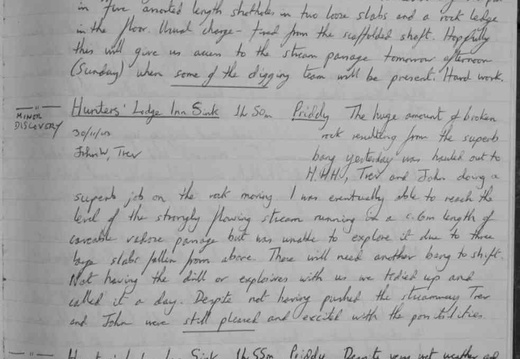 in five assorted length shotholes in two loose slabs and a rock ledge
in the floor. Usual charge - fired from the scaffolded shaft. Hopefully
this will give us access to the stream passage tomorrow afternoon
(Sunday) when some of the digging team will be present. Hard work.
— " —
MINOR
DISCOVERY
Hunters' Lodge Inn Sink 1h 50m Priddy The huge amount of broken
30/11/02 rock resulting from the superb
John W, Trev bang yesterday was hauled out to
Trev and John doing a
superb job on the rock moving I was eventually able to reach the
level of the strongly flowing stream running in a c.6m length of
vadose passage but was unable to explore it due to three
large slabs fallen from above. These will need another bang to shift.
Not having the drill or explosives with us we tidied up and
called it a day. Despite not having pushed the streamway Trev
and John were still pleased and excited with the possibilities.
— " —
Sink 1h 55m Priddy Despite very wet weather and